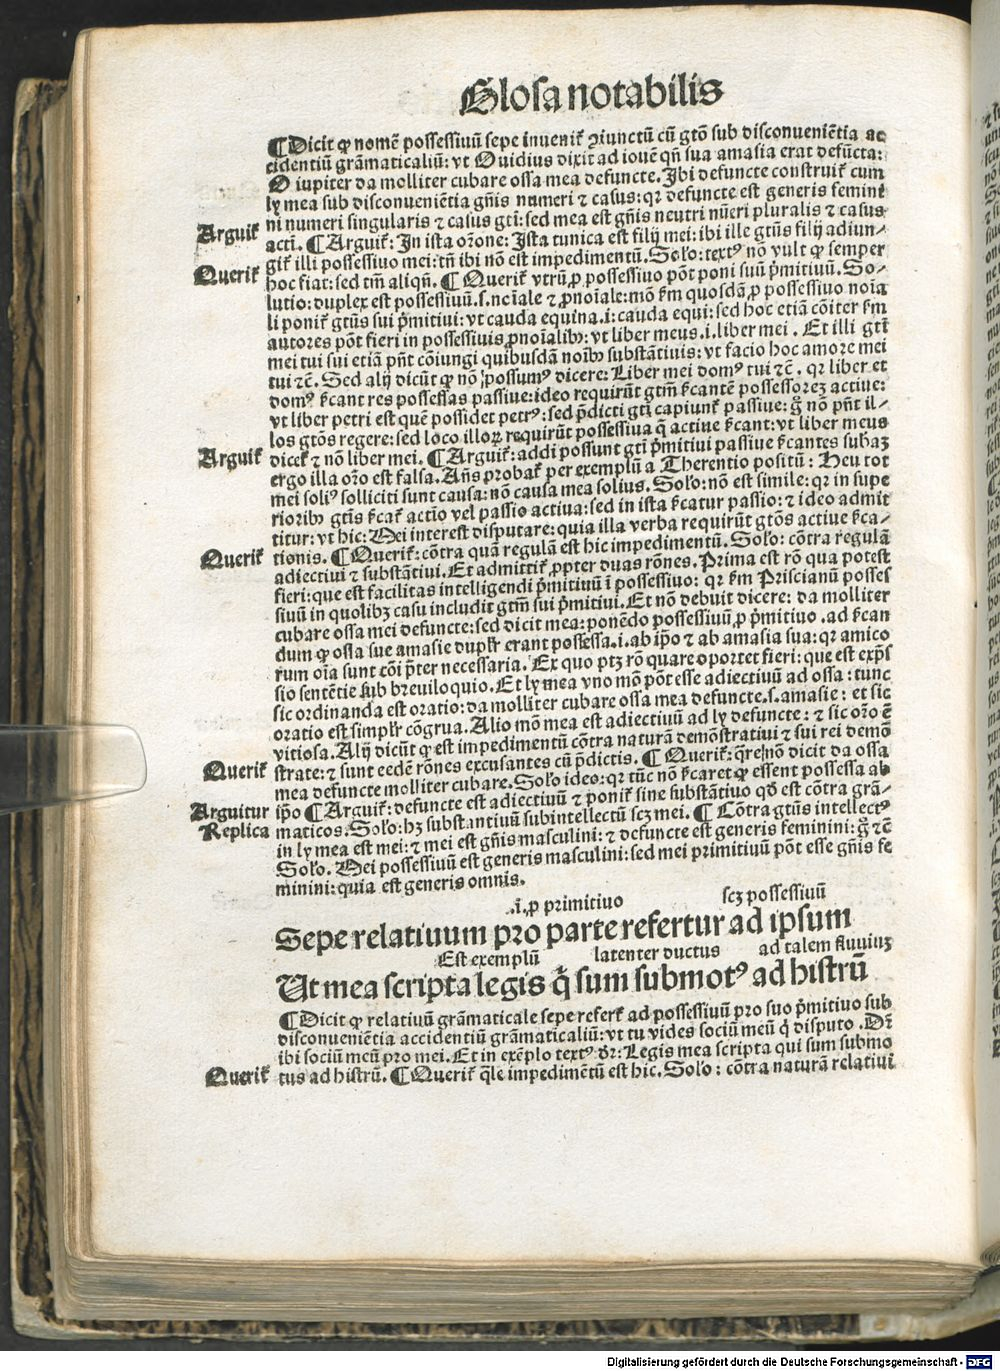 Glosa notabilis
¶Dicit ꝙ nomē possessiuū sepe inuenit᷑ ꝯiunctū cū gtō sub disconueniētia ac
cidentiū grāmaticaliū: vt Ouidius dixit ad iouē qn̄ sua amasia erat defūcta:
O iupiter da molliter cubare ossa mea defuncte. Ibi defuncte construit᷑ cum
ly mea sub disconueniētia gn̄is numeri ⁊ casus: qꝛ defuncte est generis femini
ni numeri singularis ⁊ casus gti: sed mea est gn̄is neutri nūeri pluralis ⁊ casus
Arguit᷑
acti. ¶Arguit᷑: In ista or̄one: Ista tunica est filij mei: ibi ille gtūs filij adiun-
git᷑ illi possessiuo mei: tn̄ ibi nō est impedimentū. Solo: textꝰ nō vult ꝙ semper
Querit᷑
hoc fiat: sed tm̄ aliqn̄. ¶Querit᷑ vtrū ꝓ possessiuo pōt poni suū p̄mitiuū. So-
lutio: duplex est possessiuū .s. nc̄iale ⁊ ꝓnoīale: mō ẜm quosdā ꝓ possessiuo noīa
li ponit᷑ gtūs sui p̄mitiui: vt cauda equina .i: cauda equi: sed hoc etiā cōiter ẜm
autores pōt fieri in possessiuis ꝓnoīalibꝫ: vt liber meus .i. liber mei. Et illi gtī
mei tui sui etiā pn̄t cōiungi quibusdā noībꝫ substātiuis: vt facio hoc amore mei
tui ⁊c̄. Sed alij dicūt ꝙ nō possumꝰ dicere: Liber mei domꝰ tui ⁊c̄. qꝛ liber et
domꝰ ẜcant res possessas passiue: ideo requirūt gtm̄ ẜcantē possessoreꝫ actiue:
vt liber petri est quē possidet petrꝰ: sed p̄dicti gti capiunt᷑ passiue: g̊ nō pn̄t il-
los gtōs regere: sed loco illoꝝ requirūt possessiua q̄ actiue ẜcant: vt liber meus
Arguit᷑
dicet᷑ ⁊ nō liber mei. ¶Arguit᷑: addi possunt gti p̄mitiui passiue ẜcantes
ergo illa or̄o est falsa. An̄s probat᷑ per exemplū a Therentio positū: Heu tot
mei soliꝰ solliciti sunt causa: nō causa mea solius. Solo: nō est simile: qꝛ in supe
rioribꝫ gtūs ẜcat᷑ actio vel passio actiua: sed in ista ẜcatur passio: ⁊ ideo admit
titur: vt hic: Mei interest disputare: quia illa verba requirūt gtōs actiue ẜca-
Querit᷑
tionis. ¶Querit᷑: cōtra quā regulā est hic impedimentū. Solo: cōtra regulā
adiectiui ⁊ substātiui. Et admittit᷑ ꝓpter duas rōnes. Prima est rō qua potest
fieri: que est facilitas intelligendi p̄mitiuū ī possessiuo: qꝛ ẜm Priscianū posses
siuū in quolibꝫ casu includit gtm̄ sui p̄mitiui. Et nō debuit dicere: da molliter
cubare ossa mei defuncte: sed dicit mea: ponēdo possessiuū ꝓ p̄mitiuo .ad ẜcan
dum ꝙ ossa sue amasie duplr̄ erant possessa .i. ab ip̄o ⁊ ab amasia sua: qꝛ amico
rum oīa sunt cōi p̄ter necessaria. Ex quo ptꝫ rō quare oportet fieri: que est exp̄s
sio sentētie sub breuiloquio. Et ly mea vno mō pōt esse adiectiuū ad ossa: tunc
sic ordinanda est oratio: da molliter cubare ossa mea defuncte .s. amasie: et sic
oratio est simplr̄ cōgrua. Alio mō mea est adiectiuū ad ly defuncte: ⁊ sic or̄o ē
vitiosa. Alij dicūt ꝙ est impedimentū cōtra naturā demōstratiui ⁊ sui rei demō
Querit᷑
strate: ⁊ sunt eedē rōnes excusantes cū p̄dictis. ¶Querit᷑: q̄re nō dicit da ossa
mea defuncte molliter cubare. Solo ideo: qꝛ tūc nō ẜcaret ꝙ essent possessa ab
Arguitur
ip̄o ¶Arguit᷑: defuncte est adiectiuū ⁊ ponit᷑ sine substātiuo qd̄ est cōtra grā-
Replica
maticos. Solo: hꝫ substantiuū subintellectū scꝫ mei. ¶Cōtra gtūs intellectꝰ
in ly mea est mei: ⁊ mei est gn̄is masculini: ⁊ defuncte est generis feminini: g̊ ⁊c̄
Solo. Mei possessiuū est generis masculini: sed mei primitiuū pōt esse gn̄is fe
minini: quia est generis omnis.
.i. ꝓ primitiuo scꝫ possessiuū
Sepe relatiuum pro parte refertur ad ipsum
Est exemplū latenter ductus ad talem fluuiuꝫ
Ut mea scripta legis q̄ sum submotꝰ ad histrū
¶Dicit ꝙ relatiuū grāmaticale sepe refert᷑ ad possessiuū pro suo p̄mitiuo sub
disconueniētia accidentiū grāmaticaliū: vt tu vides sociū meū q̇ disputo. Dr̄
ibi sociū meū pro mei. Et in exēplo textꝰ dr̄: Legis mea scripta qui sum submo
Querit᷑
tus ad histrū. ¶Querit᷑ q̄le impedimētū est hic. Solo: cōtra naturā relatiui
Digitalisierung gefördert durch die Deutsche Forschungsgemeinschaft - DFG